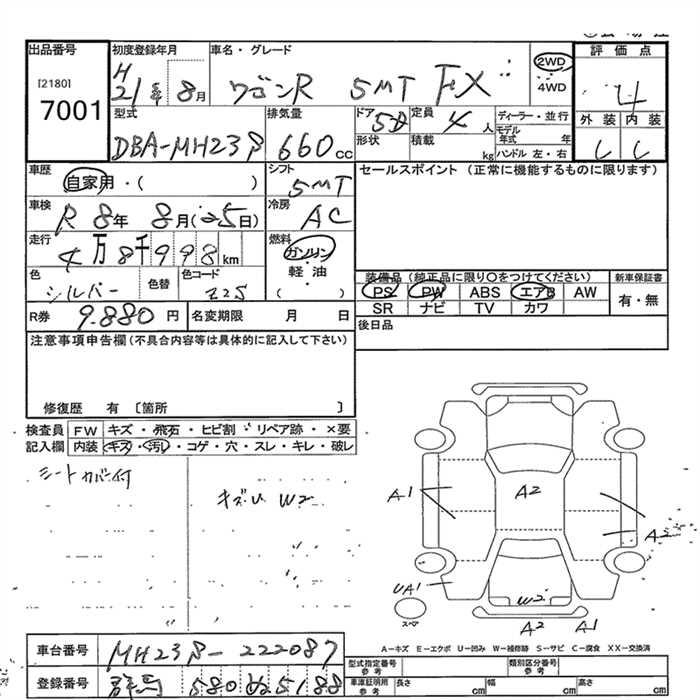 出品番号
[2180]
7001
初度登録年月
H 21年 8月
車名・グレード
ワゴンR 5MT FX
2WD
・
4WD
評価点
4
型式
DBA-MH23S
排気量
660cc
ドア
5D
定員
4人
形状
積載
kg
ディーラー・並行
モデル年式 年
ハンドル 左・右
外装 内装
C C
車歴
自家用・( )
シフト
5MT
セールスポイント (正常に機能するものに限ります)
車検
R 8年 8月( 5日)
冷房
AC
走行
4万8千998km
燃料
ガソリン
・
軽油
( )
色
シルバー
色替
色コード
Z2S
装備品(純正品に限り〇をつけてください)
PS PW ABS エアB AW
SR ナビ TV カワ
新車保証書
有・無
R券 9.880円
名変期限 月 日
後日品
注意事項申告欄(不具合内容等は具体的に記入して下さい)
修復歴 有 〔箇所 〕
検査員記入欄
FW キズ・飛石・ヒビ割・リペア跡・×要
内装 キズ・汚レ・コゲ・穴・スレ・キレ・破レ
シートカバー付
キズU W2
A1
A2
A2
UA1
W2
スペア
A2
A1
A-キズ E-エクボ U-凹み W-補修跡 S-サビ C-腐食 XX-交換済
車台番号 MH23S-222087
登録番号 群馬 580 ぬ 5188
型式指定番号
参考
類別区分番号
参考
車庫証明用
参考
長さ cm 幅 cm 高さ cm